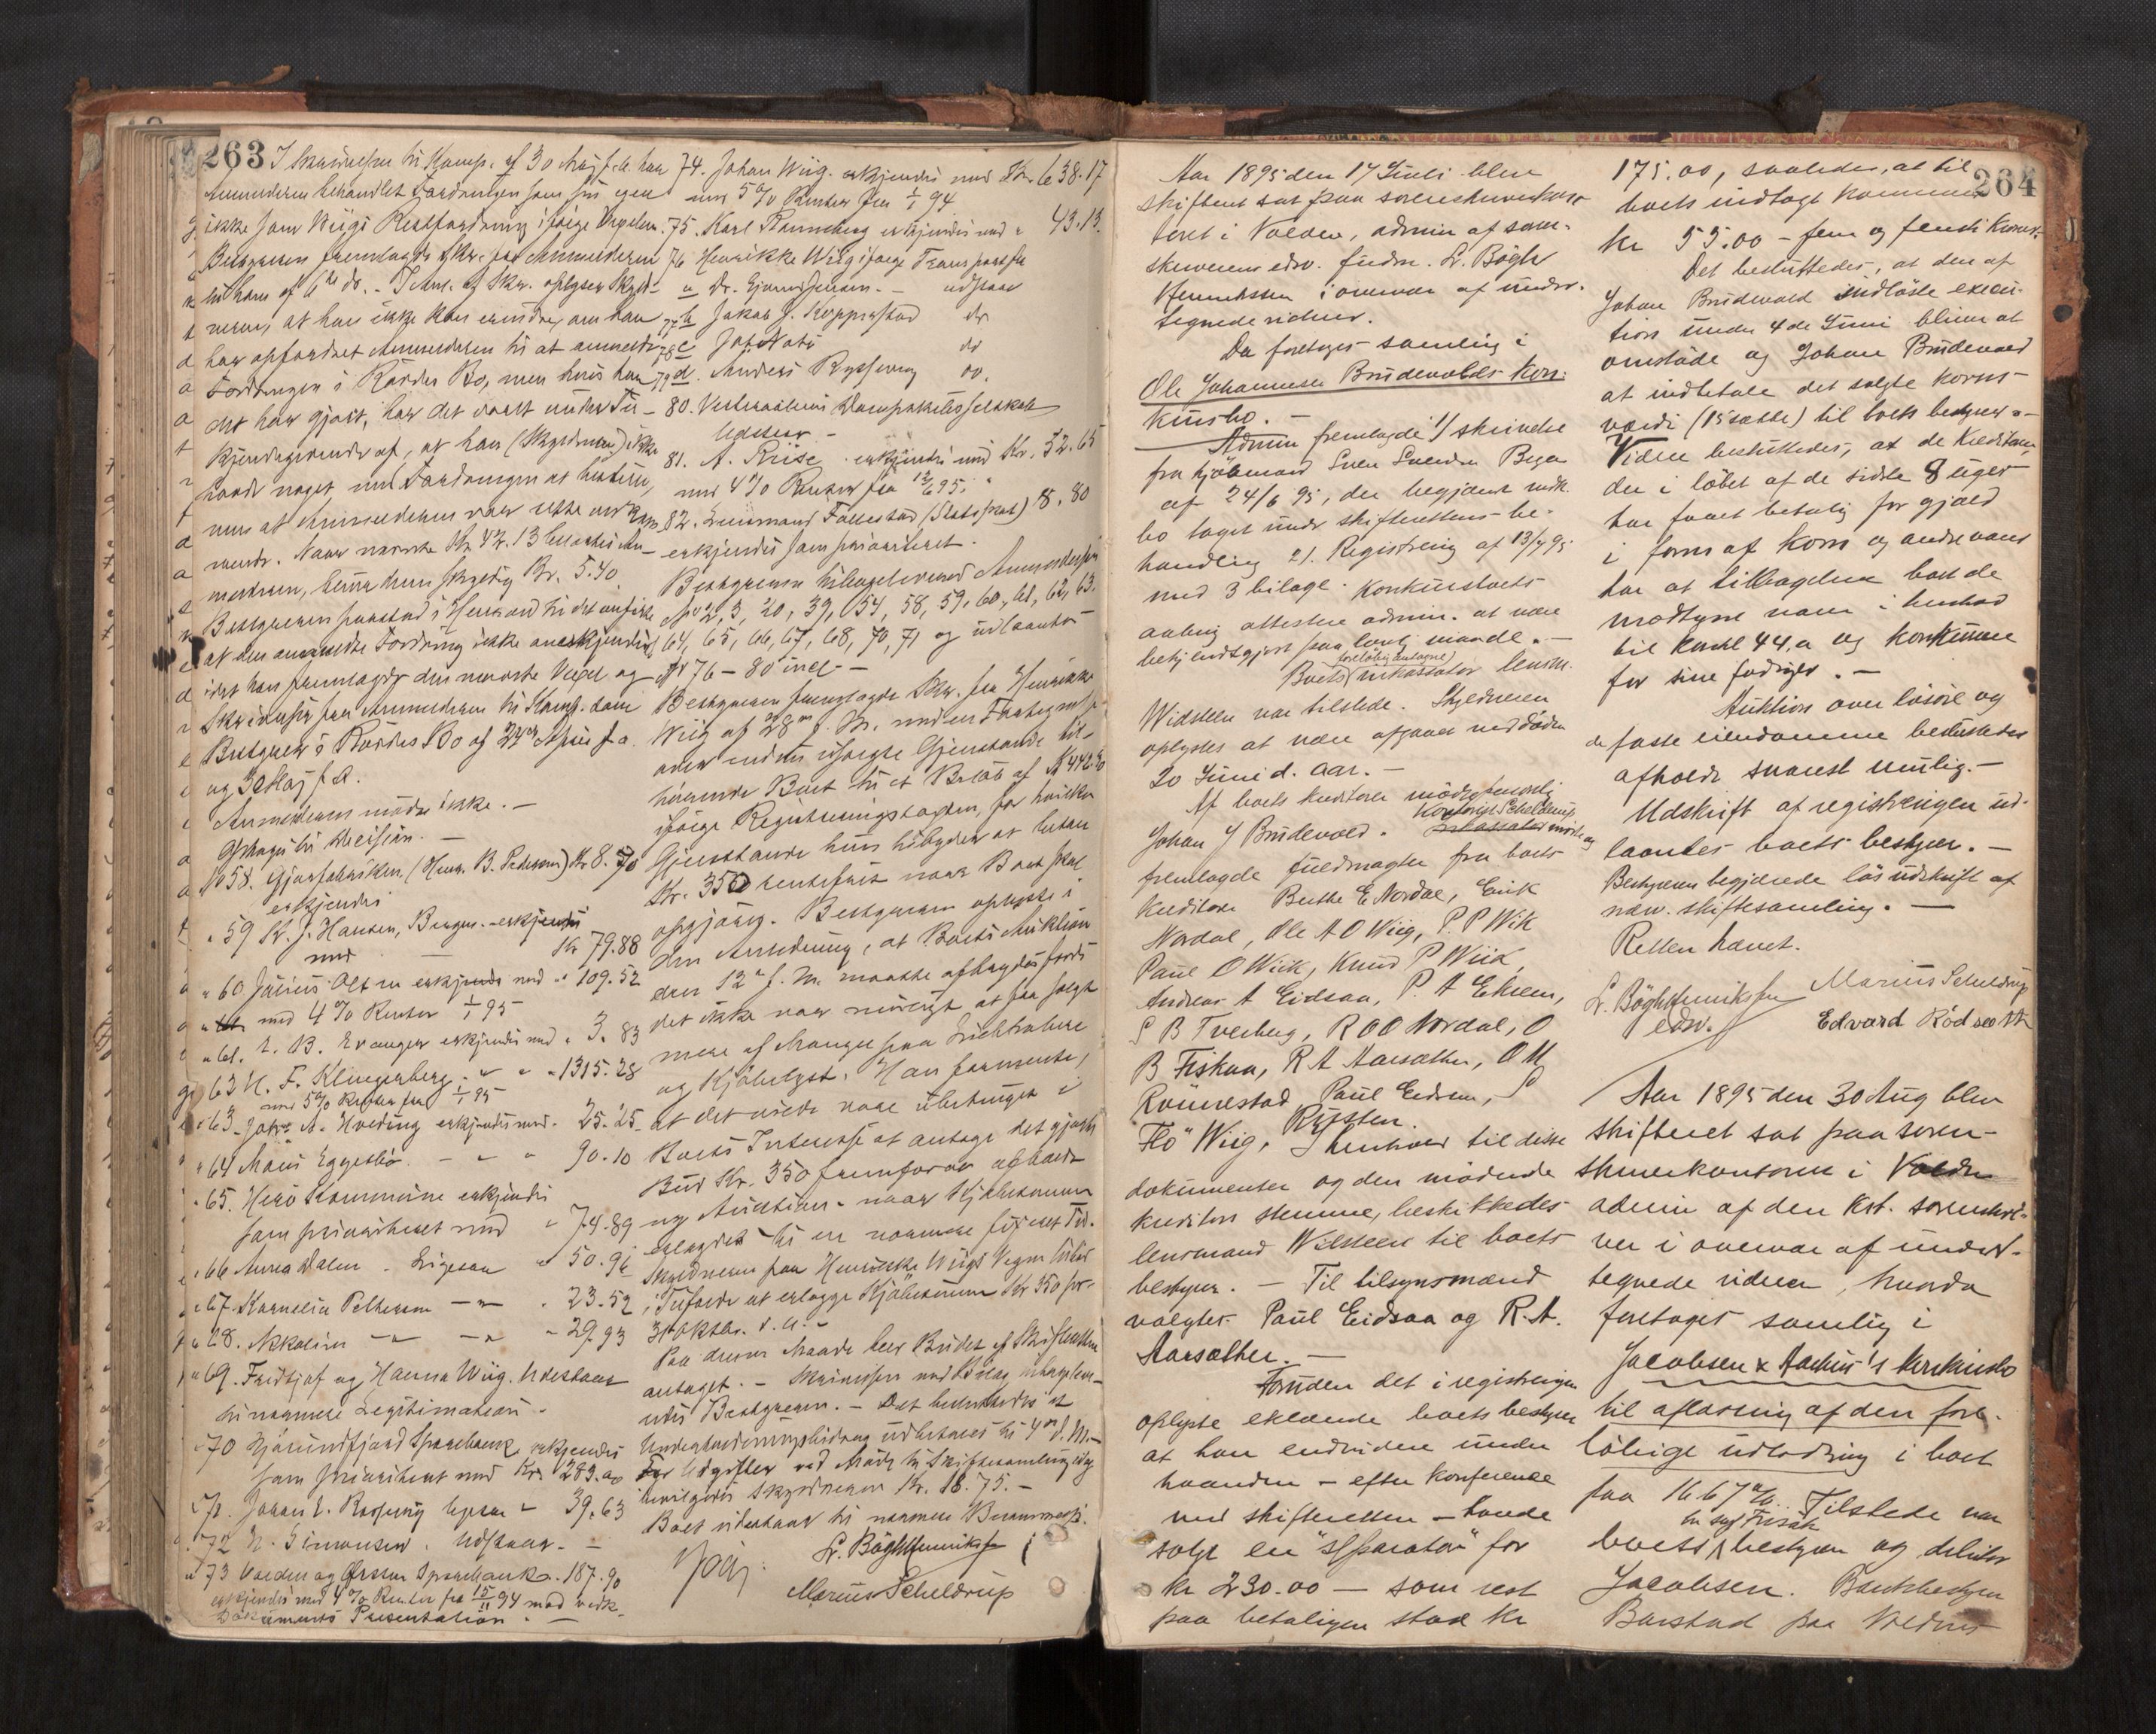 263
I Skrivelse til Konsp. af 30 Maj f. A. har
Anmelderen behandlet Fordringen som sin egen
ikke som Wiigs Restfordring ifølge Vexelen.
Bestyreren fremlagde Skr. fra Anmelderen
til ham af 6te ds. - Skyld-
neren, at han ikke kan erindre, om han
har opfordret Anmelderen til at anmelde
Fordringen i Bo, men hvis han
det har gjort, har det været under Til-
kjendegivende af, at han (Skyldneren) ikke
havde noget med Fordringen at bestille,
men at Anmelderen var rette
Naar Kr. 42.13
Kr. 5.40
Bestyreren paastod i Henhold til det anførte
at den anmeldte Fordring ikke anerkjendes
idet han fremlagde den Vexel og
Skrivelse fra Anmelderen til
Bestyrer i Bo af April f. a.
og 30 Maj f. A.
Anmelderen møder ikke. -
Optages til Decision. -
No 58. (Henr. B. Pedersen) Kr 8.70
erkjendes
" 59 J. Hansen, Bergen. erkjendes
med Kr 79.88
" 60 Julius Olsen erkjendes med " 109.52
med 4% Renter 1/1 95
" 61. L. B. Evanger erkjendes med " 3.83
62 H. F. Klingenberg " " " 1315.28
med 5% Renter fra 1/1 95
" 63 A. Hveding erkjendes med " 25.25
" 64 Måns Eggesbø - " " 90.10
" 65. Herø Kommune erkjendes
som prioriteret med " 74.89
" 66 Anna Dalen - Ligesaa " 50.96
" 67. Kornelia Pettersen - " - " 23.52
" 28. Nikoline - " - " 29.93
" 69. Fridtjof og Hanna Wiig. Udestaar
til nærmere Legitimation.
" 70 Hjørundfjord Sparebank erkjendes
som prioriteret med Kr. 283.00
" 71. Johan E. ligesaa " 39.63
" 72 N. Simonsen. Udstaar. -
" 73 Volden og Ørsten Sparebank " 187.90
erkjendes med 4% Renter fra 15/11 94 mod vedk.
Dokuments Præsentation. -
74. Johan Wiig. erkjendes med Kr. 638.17
med 5% Renter fra 1/1 94
75. Karl Ranneberg erkjendes med " 43.13.
76 Henrikke Wiig ifølge Transport fra
a Dr. - udstaar
77 b Jakob J. Kopperstad do
78 c do
79 d. Anders do.
80. Vestenaalens Dampskibsselskab
Udstaar -
81. A. Kruse - erkjendes med Kr. 32.65
med 4% Renter fra 12/6 95.
82. Lensmand Follestad (Statskas) 8.80
erkjendes som prioriteret.
Bestyreren tilbageleverede Anmeldelser
No 2, 3, 20, 39, 54, 58, 59, 60, 61, 62, 63,
64, 65, 66, 67, 68, 70, 71 og udlaantes
No 76 - 80 incl. -
Bestyreren fremlagde Skr. fra Henrikke
Wiig af 28de f. M. med en Fortegnelse
over endnu usolgte Gjenstande til-
hørende Boet til et Beløb af Kr 442.
ifølge Registreringstaxten, for hvilke
Gjenstande hun tilbyder at betale
Kr. 350 rentefrit naar Boet skal
opgjøres. Bestyreren oplyste i
den Anledning, at Boets Auktion
den 12te f. M. maatte afbrydes fordi
det ikke var muligt at faa solgt
mere af Mangel paa Liebhabere
og Kjøbelyst. Han formente,
at det vilde være ubetinget i
Boets Interesse at antage det gjorte
Bud Kr. 350 fremfor at afholde
ny Auktion - naar Kjøbesummen
erlagdes til en nærmere fixeret Tid.
Skyldneren paa Henrikke Wiigs Vegne tilbød
i Tilfælde at erlægge Kjøbesummen Kr 350 før
31 Oktbr. d. A. -
Paa denne Maade blev Budet af Skifteretten
antaget. - Skrivelsen med Bilag tilbagelever-
edes Bestyreren. - Det besluttedes at
Underholdningsbidrag udbetales til 4de d. M. -
For Udgifter ved Møde til Skiftesamling idag
tilstodes Skyldneren Kr. 18.75. -
Boet udestaar til nærmere Berammelse.
L. Bögh Henrikssen
Marius Scheldrup
264
Aar 1895 den 17 Juli blev
skifteret sat paa sorenskriverkon-
toret i Volden, admin af soren-
skriverens edsv. fuldm. L. Bögh
Henrikssen i overvær af under-
tegnede vidner.
Da foretoges samling i
Ole Johannesen Brudevolds kon-
kursbo. -
Admin fremlagde 1/ skrivelse
fra kjøbmand Sven Svendsen Bega
af 24/6 95, der begjærer vedk.
bo taget under skifterettens be-
handling 2/. Registrering af 13/7 95
med 3 bilage. Konkursboets
aabning attesterer admin. at være
bekjendtgjort paa lovlig maade. -
Boets (foreløbig antagne) inkassator lensm.
Widsteen var tilstede. Skyldneren
oplystes at være afgaaet ved døden
20 Juni d. aar. -
Af boets kreditorer mødte personlig
Johan J Brudevold. Kontorist Scheldrup mødte og
fremlagde fuldmagter fra boets
kreditorer Berthe E Nordal, Erik
Nordal, Ole A O Wiig, P. P Wik
Paul O Wiik, Knud P Wiik,
Andreas A Eidsaa, P. A Ekrem,
S B Tverberg, R O O Nordal, O
B Fiskaa, R A Aarsæther, O M
Rönnestad, Paul Eidsaa, S
Flo Wiig, Rusten. I henhold til disse
dokumenter og den mødende
kreditors stemme, beskikkedes
lensmand Widsteen til boets
bestyrer. - Til tilsynsmænd
valgtes Paul Eidsaa og R. A.
Aarsæther. -
Foruden det i registreringen
oplyste erklærede boets bestyrer
at han endvidere under
haanden - efter konference
med skifteretten - havde
solgt en "separator" for
kr 230.00 - som rest
paa betalingen stod kr
175.00, saaledes, at til
boets indtægt kommer
kr 55.00 - fem og femti kroner.
Det besluttedes, at den af
Johan Brudevold indløste execu-
tion under 4de Juni bliver at
omstøde og Johan Brudevold
at indbetale det solgte korns
værdi (15 sække) til boets bestyrer. -
Videre besluttedes, at de Kreditorer,
der i løbet af de sidste 8 uger
har faaet betaling for gjæld
i form af korn og andre varer
har at tilbagelevere boet de
modtagne varer i henhold
til Kanl 44,a og konkurrere
for sine fordringer. -
Auktion over løsøre og
de faste eiendomme besluttedes
afholdt snarest mulig. -
Udskrift af registreringen ud-
laantes boets bestyrer. -
Bestyreren begjærede løs udskrift af
nærv. skiftesamling. -
Retten hævet.
L. Bögh Henrikssen
edsv.
Marius Scheldrup
Edvard Rödseth
Aar 1895 den 30 Aug blev
skifteret sat paa soren-
skriverkontoret i Volden
admin af den kst. sorenskri-
ver i overvær af under-
tegnede vidner, hvorda
foretoges samling i
Jacobsen & Aarhus's konkursbo
til aflæsning af den fore-
løbige udlodning i boet
paa 16.67 %. Tilstede var
boets bestyrer og debitor
Jacobsen. Bankbestyrer
Barstad paa Voldens